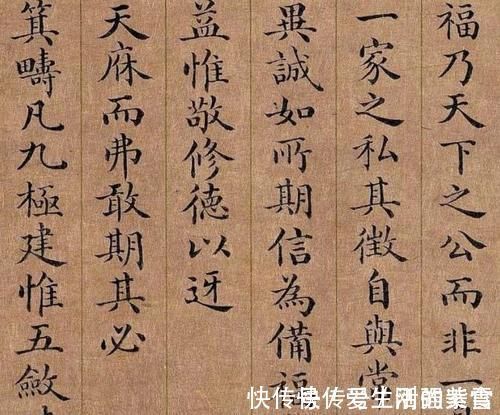 福乃天下之公而非
一家之私其徵自與
異誠如所期信為備福
益惟敬修德以迓
天庥而弗敢期其必
箕疇凡九極建惟五斂
快传号